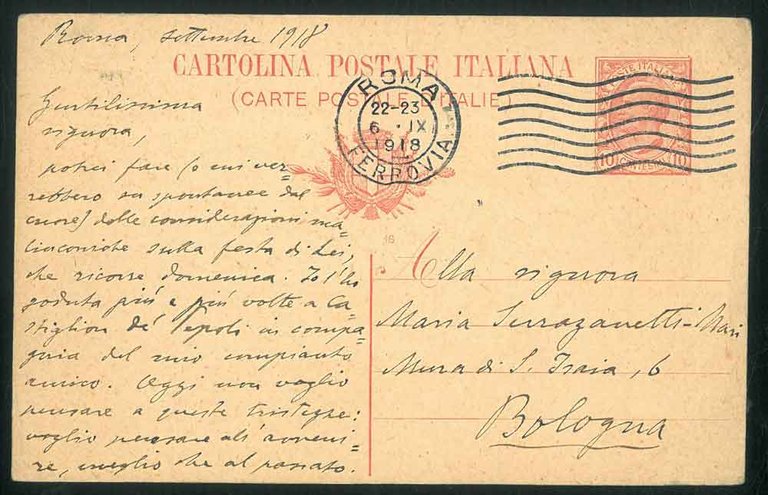 Roma, settembre 1918
CARTOLINA POSTALE ITALIANA
(CARTE POSTALE D'ITALIE)
ROMA
22-23
6 · IX
1918
FERROVIA
POSTE ITALIANE
10 CENTESIMI 10
16
Gentilissima
signora,
potrei fare (o mi ver-
rebbero su spontanee dal
cuore) delle considerazioni ma-
linconiche sulla festa di Lei,
che ricorre domenica. Io l'ho
goduta più e più volte a Ca-
stiglion de' Pepoli in compa-
gnia del suo compianto
amico. Oggi non voglio
pensare a queste tristezze:
voglio pensare all'avveni-
re, meglio che al passato.
Alla signora
Maria Serrazanetti-
Mura di S. Isaia, 6
Bologna